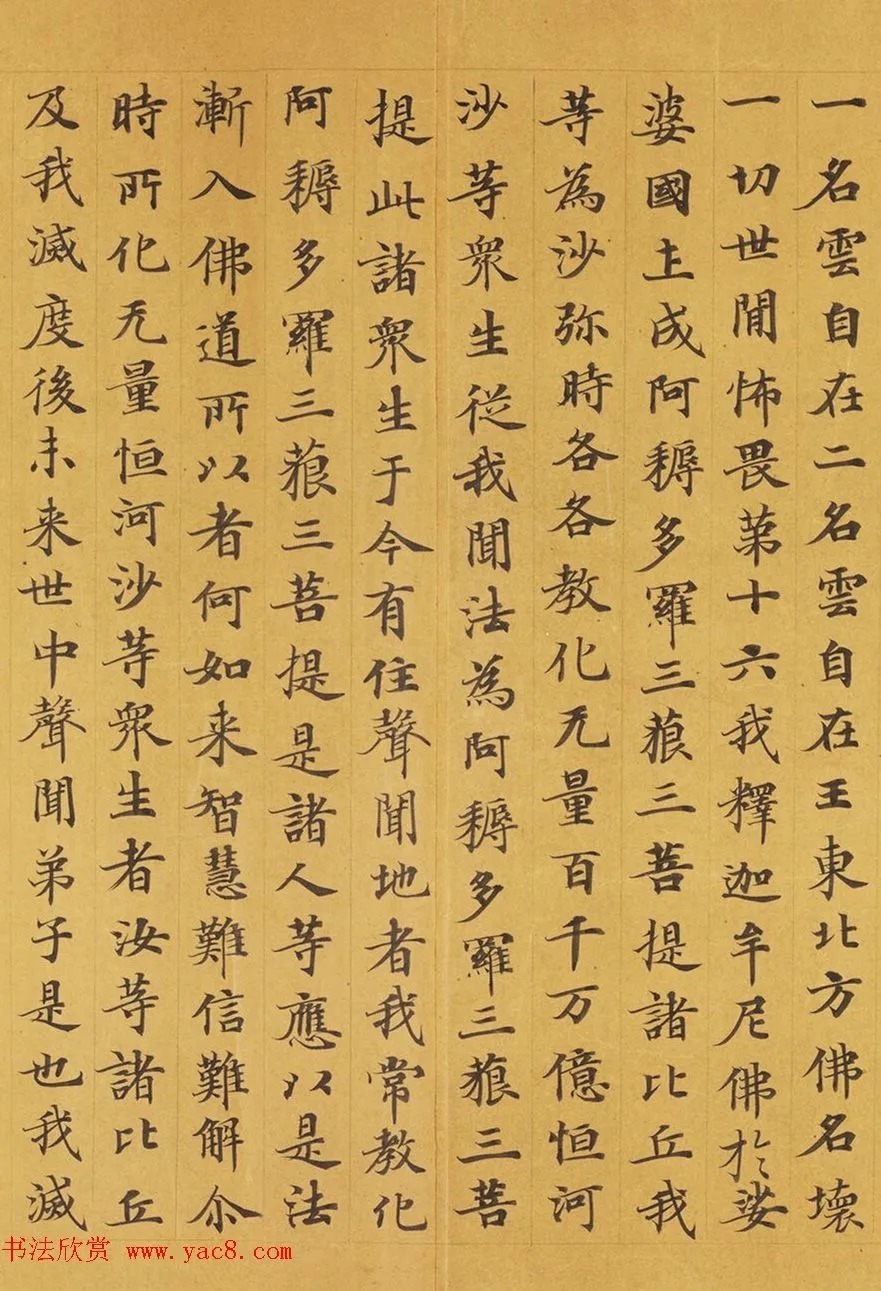 一名雲自在二名雲自在王東北方佛名壞
一切世閒怖畏苐十六我釋迦牟尼佛於娑
婆國土成阿耨多羅三藐三菩提諸比丘我
等為沙弥時各各教化无量百千万億恒河
沙等衆生從我聞法為阿耨多羅三藐三菩
提此諸衆生于今有住聲聞地者我常教化
阿耨多羅三藐三菩提是諸人等應以是法
漸入佛道所以者何如来智慧難信難解尒
時所化无量恒河沙等衆生者汝等諸比丘
及我滅度後未来世中聲聞弟子是也我滅
书法欣赏 www.yac8.com